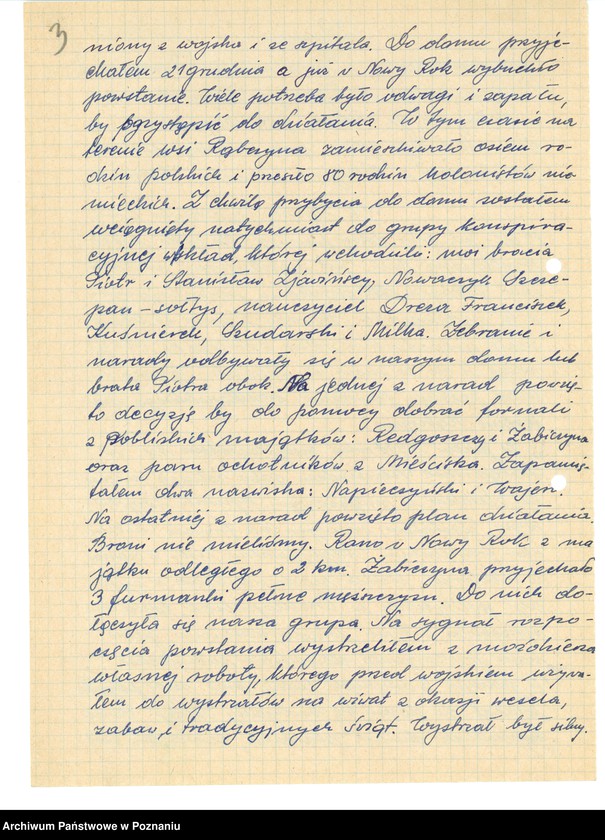 3
niony z wojska i ze szpitala. Do domu przyje-
chałem 21 grudnia a już w Nowy Rok wybuchło
powstanie. Wiele potrzeba było odwagi i zapału,
by przystąpić do działania. W tym czasie na
terenie wsi Rąbczyna zamieszkiwało osiem ro-
dzin polskich i przeszło 80 rodzin kolonistów nie-
mieckich. Z chwilą przybycia do domu zostałem
wciągnięty natychmiast do grupy konspira-
cyjnej w skład, której wchodzili: moi bracia
Piotr i Stanisław Zjawińscy, Nowaczyk Szcze-
pan – sołtys, nauczyciel Dreza Franciszek,
Kuśnierek, Szudarski i Milka. Zebranie i
narady odbywały się w naszym domu lub
brata Piotra obok. Na jednej z narad powzię-
to decyzję by do pomocy dobrać fornali
z pobliskich majątków: Redgoszczy i Żabiczyna
oraz paru ochotników z Mieściska. Zapamię-
tałem dwa nazwiska: Napieczyński i Wajer.
Na ostatniej z narad powzięto plan działania.
Broni nie mieliśmy. Rano w Nowy Rok z ma
jątku odległego o 2 km. Żabiczyna przyjechało
3 furmanki pełne mężczyzn. Do nich do-
łączyła się nasza grupa. Na sygnał rozpo-
częcia powstania wystrzeliłem z moździerza
własnej roboty, którego przed wojskiem używa-
łem do wystrzałów na wiwat z okazji wesela,
zabaw i tradycyjnych świąt. Wystrzał był silny.
Archiwum Państwowe w Poznaniu